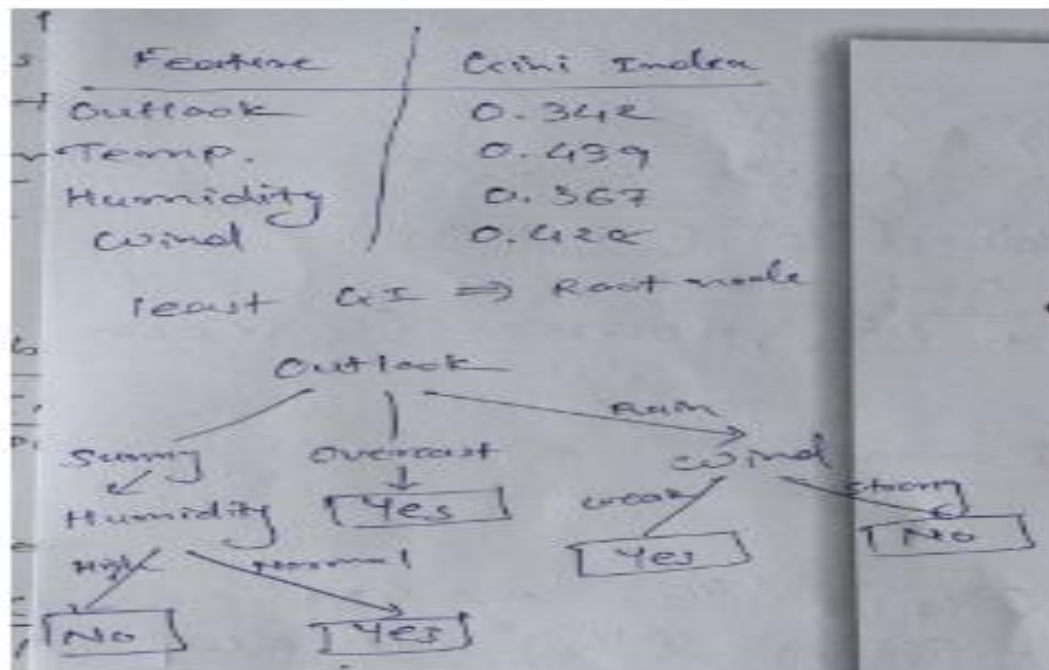 Feature Gini Index
Outlook 0.342
Temp. 0.439
Humidity 0.367
Wind 0.428
least GI ⇒ Root node
Outlook
Rain
Sunny Overcast Wind
Humidity Yes weak Strong
High Normal Yes No
No Yes